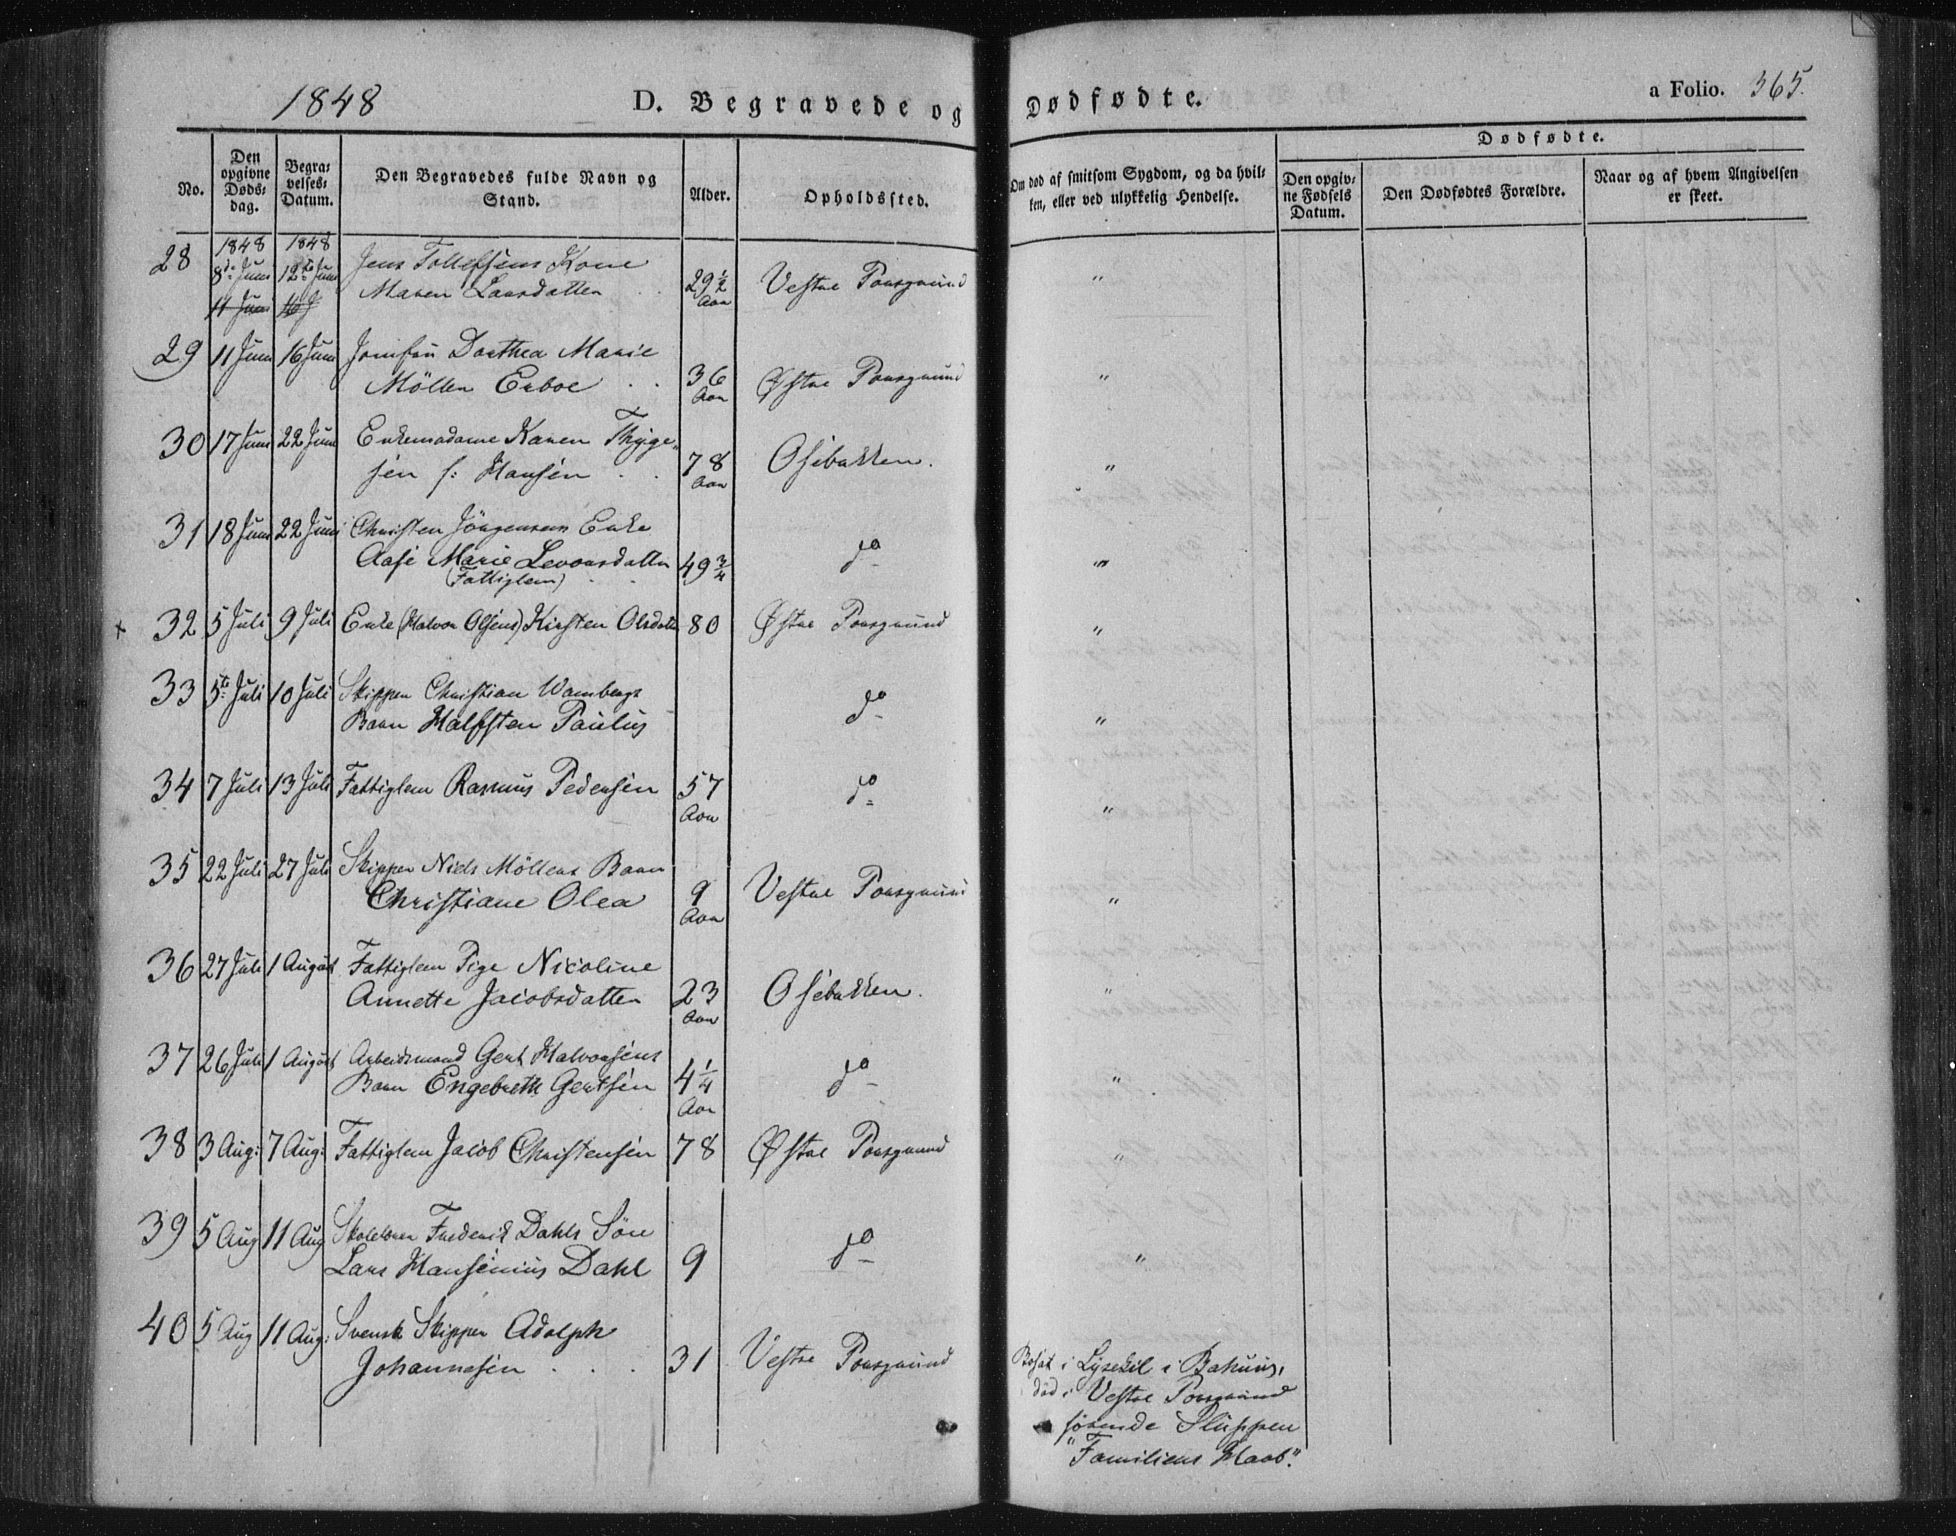 1848
D. Begravede og Dødfødte.
a Folio. 365.
No.
Den opgivne Døds-dag.
Begra-velses-Datum.
Den Begravedes fulde Navn og Stand.
Alder.
Opholdssted.
Om død af smitsom Sygdom, og da hvil-
ken, eller ved ulykkelig Hendelse.
Dødfødte.
Den opgiv-ne Fødsels Datum.
Den Dødfødtes Forældre.
Naar og af hvem Angivelsen er skeet.
1848 1848
28 8de Juni 12te Juni Jens Tollefsens Kone
Maren Larsdatter 29 1/2 Aar Vestre Porsgrund "
11 Juni 16
29 11 Juni 16 Juni Jomfru Dorthea Marie
Möller Erboe 36 Aar Østre Porsgrund "
30 17 Juni 22 Juni Enkemadame Karen Thyge-
sen f: Hansen 78 Aar Osebakken. "
31 18 Juni 22 Juni Christen Jörgensens Enke
Aase Marie Levorsdatter 49 3/4 do "
(Fattiglem)
32 5 Juli 9 Juli Enke (Halvor Olsens) Kirsten Olsdatter 80 Østre Porsgrund "
33 5te Juli 10 Juli Skipper Christian Wambergs
Barn Halfsten Paulus do "
34 7 Juli 13 Juli Fattiglem Rasmus Pedersen 57 Aar do "
35 22 Juli 27 Juli Skipper Niels Möllers Barn
Christiane Olea 9 Aar Vestre Porsgrund "
36 27 Juli 1 August Fattiglem Pige Nicoline
Annette Jacobsdatter 23 Aar Osebakken. "
37 26 Juli 1 August Arbeidsmand Gert Halvorsens
Barn Engebreth Gertsen 4 1/4 Aar do "
38 3 Aug: 7 Aug: Fattiglem Jacob Christensen 78 Østre Porsgrund "
39 5 Aug 11 Aug Frederik Dahls Sön
Lars Hansenius Dahl 9 do "
40 5 Aug 11 Aug: Svensk Skipper Adolph
Johannesen 31 Vestre Porsgrund
Bosat i Lysekil i Bahuus,
död i Vestre Porsgrund
förende Sluppen
"Familiens Haab".